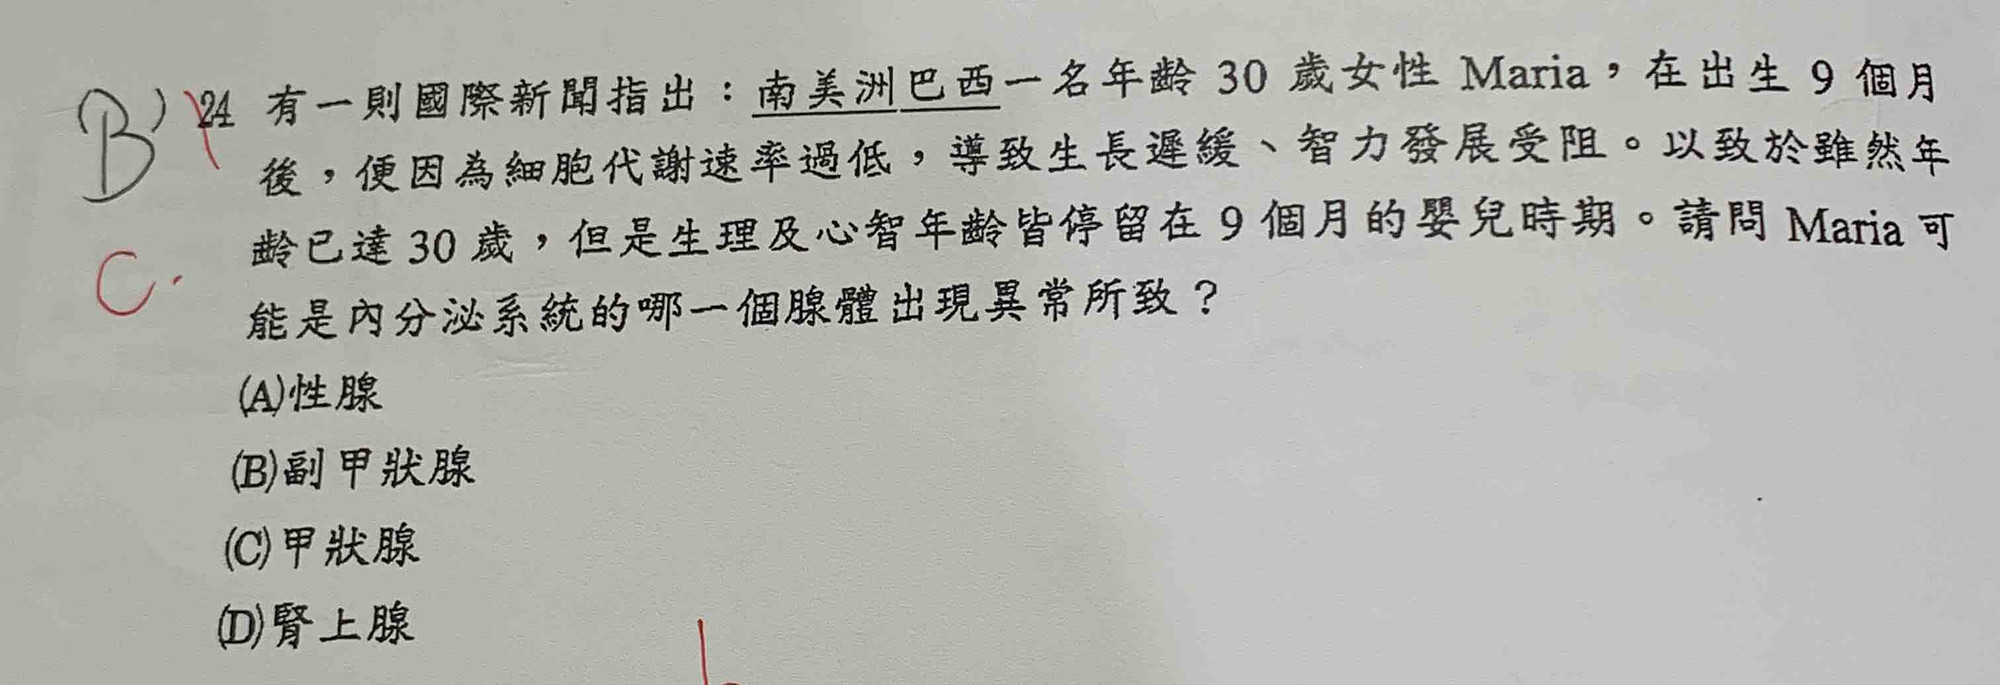 B) 24 有一則國際新聞指出：南美洲巴西一名年齡 30 歲女性 Maria，在出生 9 個月
後，便因為細胞代謝速率過低，導致生長遲緩、智力發展受阻。以致於雖然年
齡已達 30 歲，但是生理及心智年齡皆停留在 9 個月的嬰兒時期。請問 Maria 可
C.
能是內分泌系統的哪一個腺體出現異常所致？
(A)性腺
(B)副甲狀腺
(C)甲狀腺
(D)腎上腺